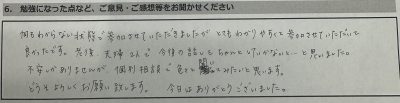 6. 勉強になった点など、ご意見・ご感想等をお聞かせください
何もわからない状態で参加させていただきましたが とてもわかりやすくて参加させていただいて
良かったです。夫婦2人で今後の話しもちゃんとしていかないと…と思いました。
不安しかありませんが、個別相談で色々聞いてみたいと思います。
どうぞよろしくお願い致します。今日はありがとうございました。